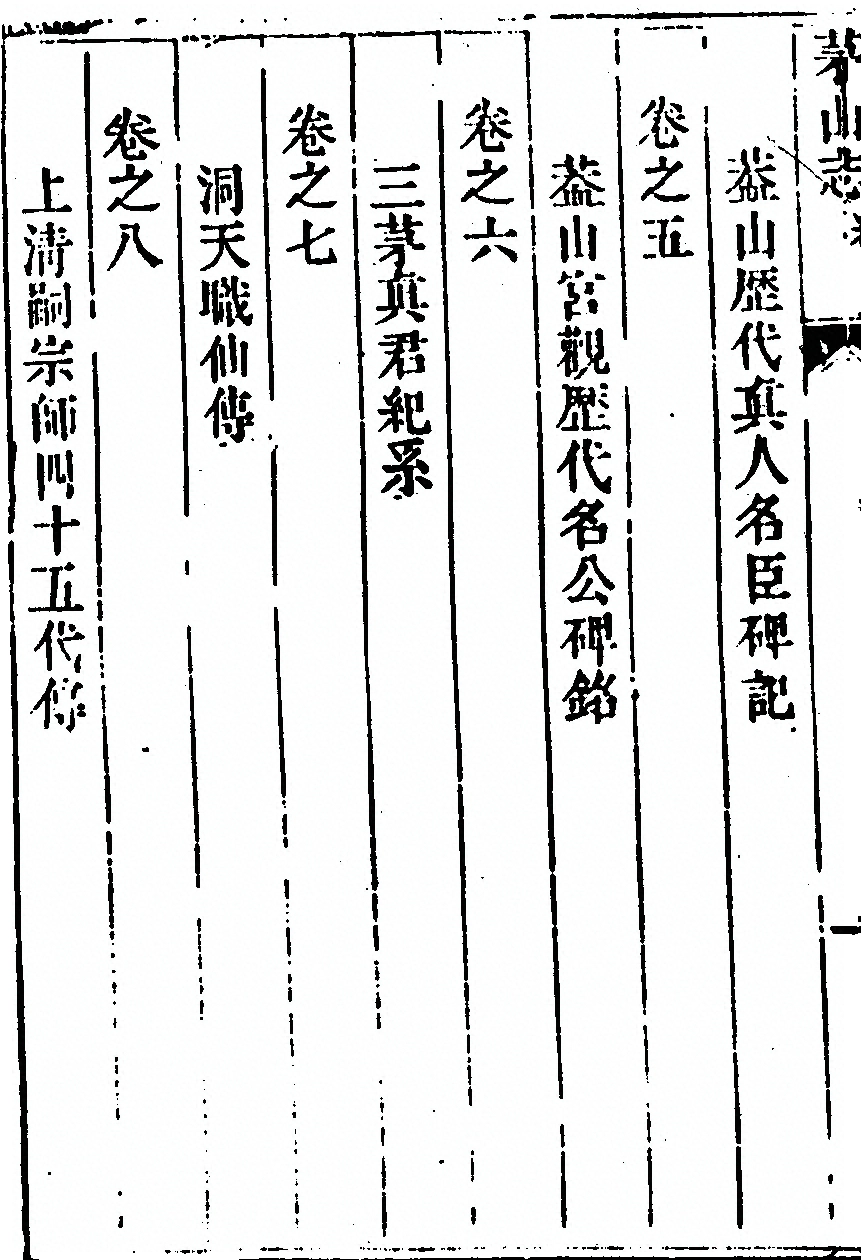 茅山志
葢山歷代真人名臣碑記
卷之五
葢山宮觀歷代名公碑銘
卷之六
三茅真君紀系
卷之七
洞天職仙傳
卷之八
上清嗣宗師四十五代傳